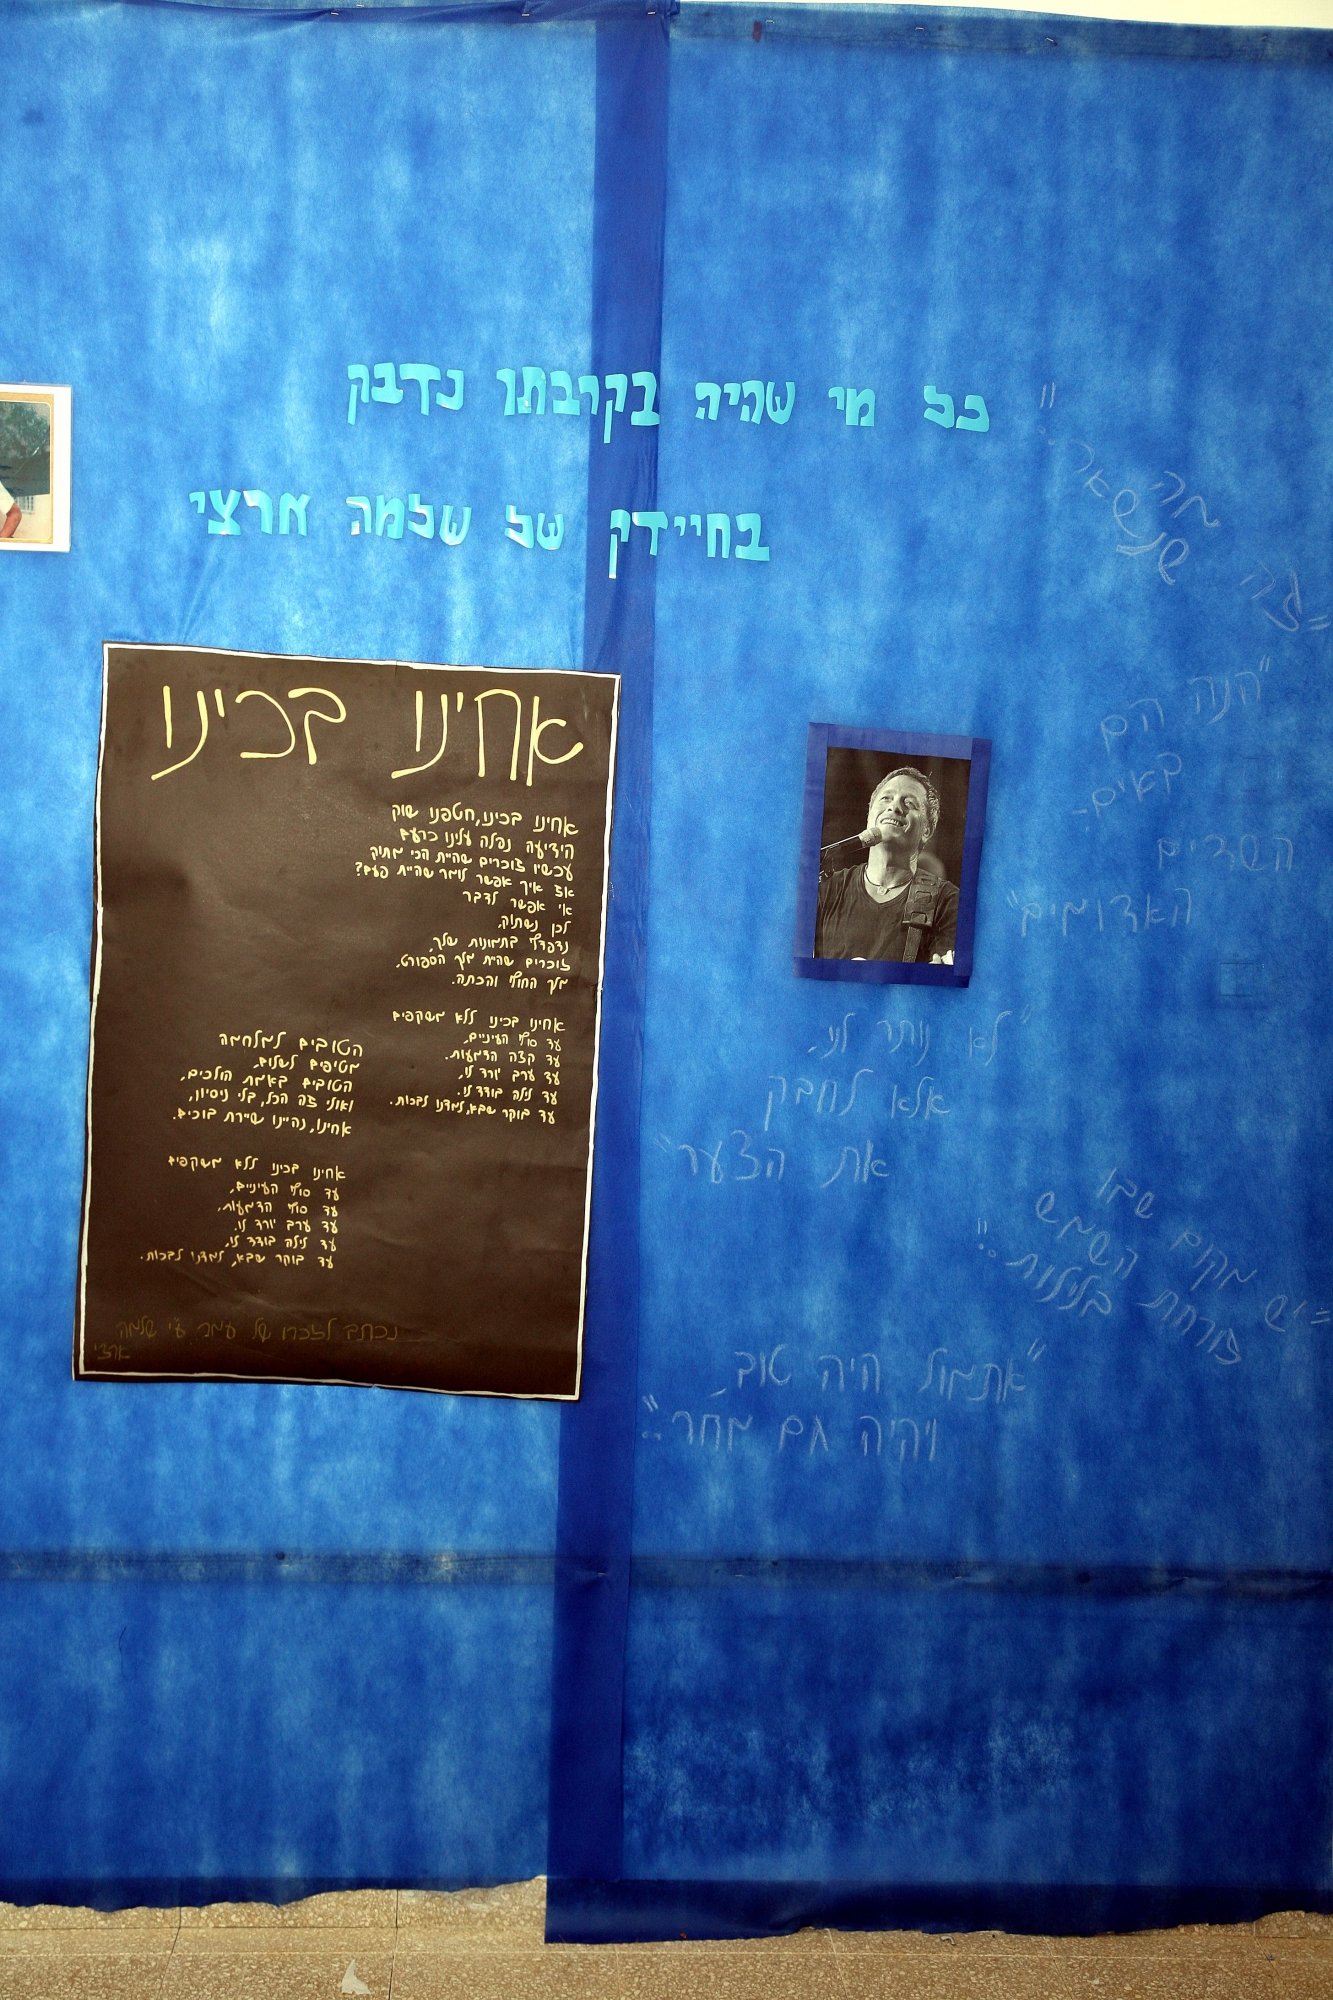 כל מי שהיה בקרבתו נדבק
בחיידק של שלמה ארצי
אחינו בכינו
אחינו בכינו, חטפנו שוק
הידיעה נפלה עלינו כרעם
עכשיו זוכרים שהיית הכי מתוק
אז איך אפשר לומר שהיית פעם?
אי אפשר לדבר
לכן נשתוק,
נדפדף בתמונות שלך,
זוכרים שהיית מלך הספורט,
מלך החוף והכתה.
אחינו בכינו ללא משקפים
עד סוף העיניים,
עד קצה הדמעות.
עד ערב יורד לו,
עד לילה בודד לו.
עד בוקר שבא, למדנו לבכות.
הטובים למלחמה
מטיפים לשלום,
הטובים באמת הולכים,
ואולי זה הכל, בלי ניסיון,
אחינו, נהיינו שיירת בוכים.
אחינו בכינו ללא משקפים
עד סוף העיניים,
עד סוף הדמעות,
עד ערב יורד לו.
עד לילה בודד לו,
עד בוקר שבא, למדנו לבכות.
נכתב לזכרו של עמר ע״י שלמה
ארצי
"זה מה
שנשאר.."
"הנה הם
באים..
השדים
האדומים"
"לא נותר לנו,
אלא לחבק
את הצער"
"יש מקום שבו
השמש
זורחת בלילות.."
"אתמול היה טוב,
ויהיה גם מחר.."